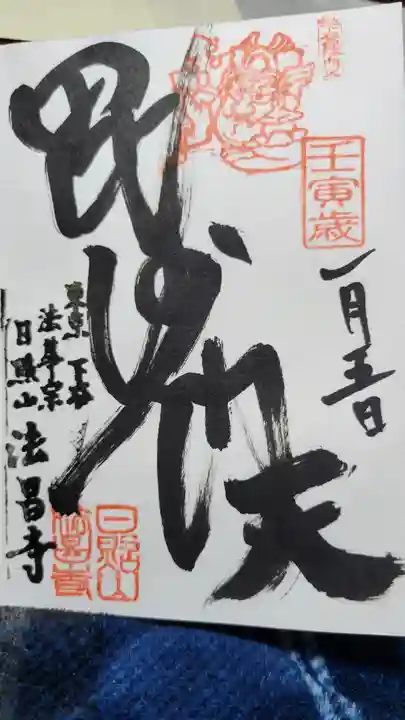 壬寅歳
一月五日
毘沙門天
東京 下谷
法華宗
日照山
法昌寺
日照山